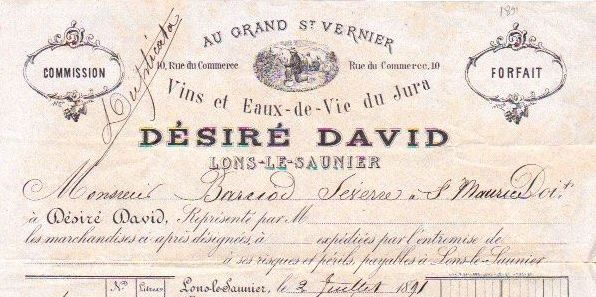 1891
AU GRAND ST VERNIER
COMMISSION
10, Rue du Commerce Rue du Commerce, 10
FORFAIT
Duplicata
Vins et Eaux-de-Vie du Jura
DÉSIRÉ DAVID
LONS-LE-SAUNIER
Monsieur Barciod Séverin à St Maurice Doit
à Désiré David, Représenté par M
les marchandises ci après désignées, à expédiées par l'entremise de
à ses risques et périls, payables à Lons-le-Saunier
Nos Litres Lons-le-Saunier, le 2 Juillet 1891